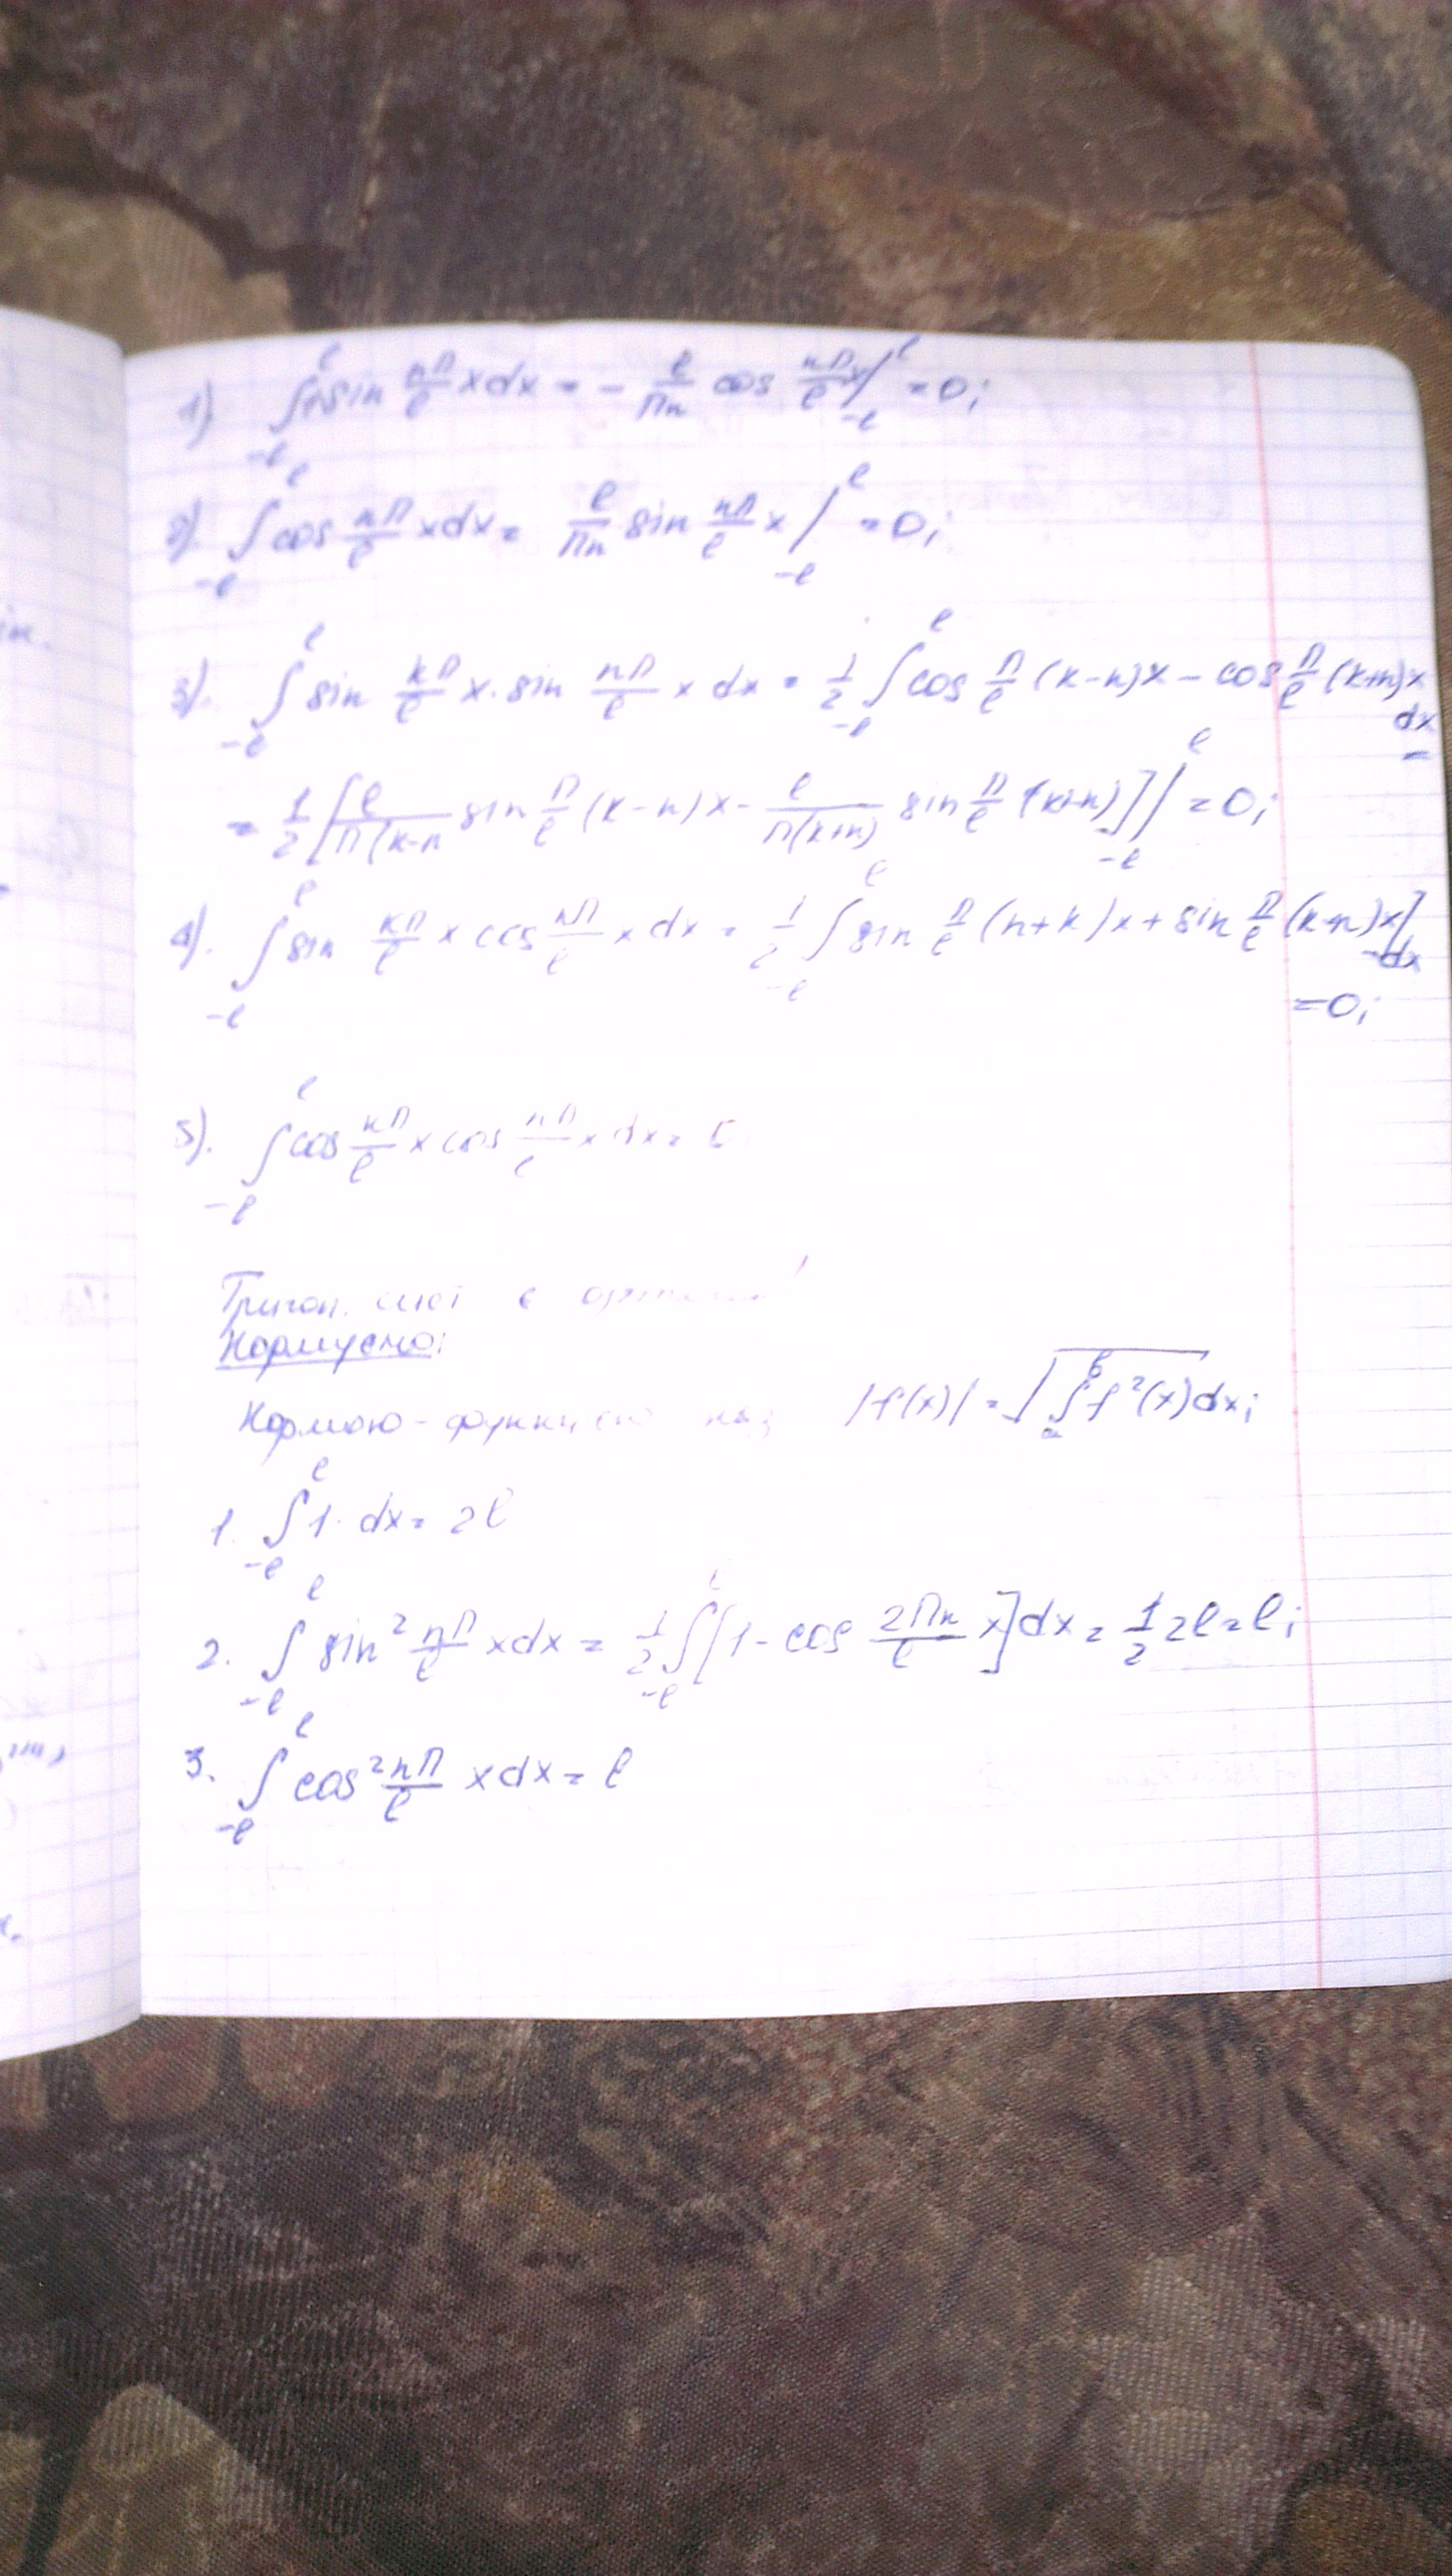 1). ∫_{-ℓ}^{ℓ} sin nπ/ℓ x dx = - ℓ/πn cos nπ/ℓ x /_{-ℓ}^{ℓ} = 0;
2). ∫_{-ℓ}^{ℓ} cos nπ/ℓ x dx = ℓ/πn sin nπ/ℓ x /_{-ℓ}^{ℓ} = 0;
3). ∫_{-ℓ}^{ℓ} sin kπ/ℓ x · sin nπ/ℓ x dx = 1/2 ∫_{-ℓ}^{ℓ} cos π/ℓ (k-n)x - cos π/ℓ (k+n)x dx =
= 1/2 [ℓ/π(k-n sin π/ℓ (k-n)x - ℓ/π(k+n) sin π/ℓ (k+n)]] /_{-ℓ}^{ℓ} = 0;
4). ∫_{-ℓ}^{ℓ} sin kπ/ℓ x cos nπ/ℓ x dx = 1/2 ∫_{-ℓ}^{ℓ} sin π/ℓ (n+k)x + sin π/ℓ (k-n)x] dx
= 0;
5). ∫_{-ℓ}^{ℓ} cos kπ/ℓ x cos nπ/ℓ x dx =
Тригон. є
Нормуємо:
Нормою - функцією наз |f(x)| = √∫_{a}^{b} f²(x)dx;
1. ∫_{-ℓ}^{ℓ} 1· dx = 2ℓ
2. ∫_{-ℓ}^{ℓ} sin² nπ/ℓ x dx = 1/2 ∫_{-ℓ}^{ℓ} [1 - cos 2πn/ℓ x] dx = 1/2 2ℓ = ℓ;
3. ∫_{-ℓ}^{ℓ} cos² nπ/ℓ x dx = ℓ